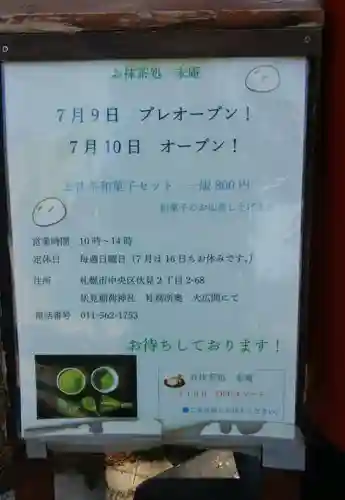 お抹茶処
7月9日 プレオープン！
7月10日 オープン！
お抹茶和菓子セット 一服800円
営業時間 10時～14時
定休日 毎週日曜日（7月は16日もお休みです。）
住所 札幌市中央区伏見2丁目2-68
伏見稲荷神社 社務所奥 大広間にて
電話番号 011-562-1753
お待ちしております！
お抹茶処